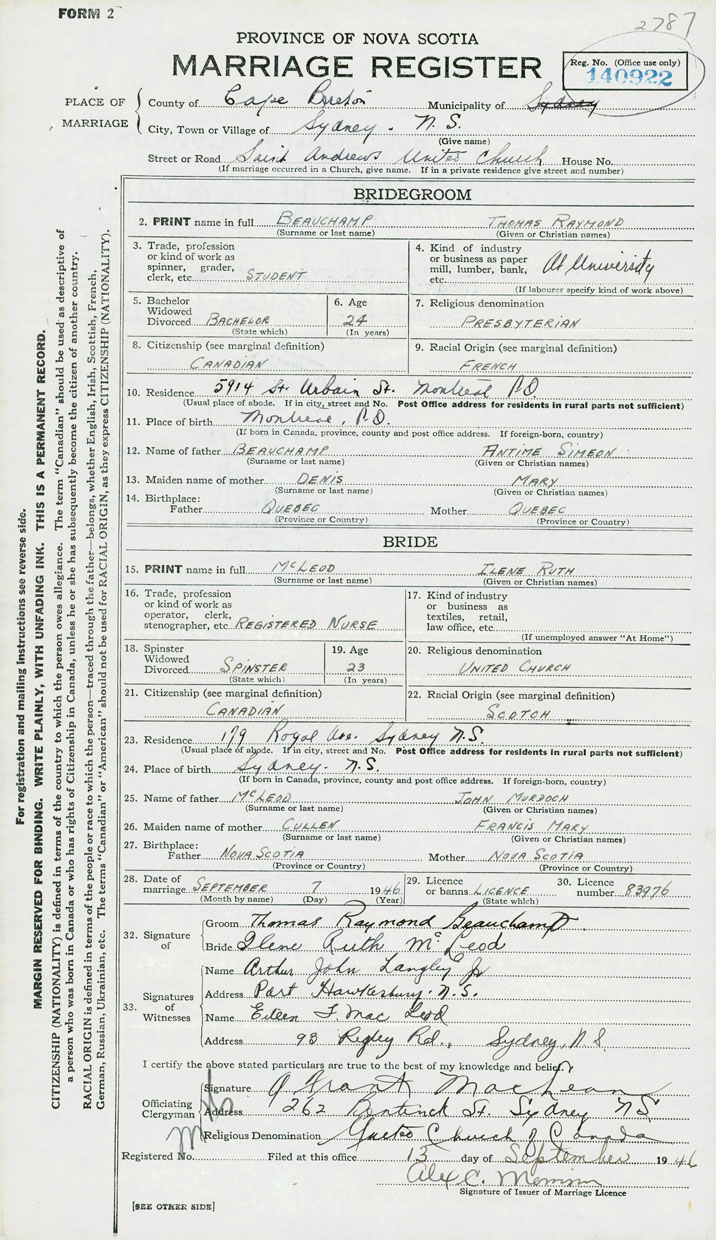 FORM 2
2787
PROVINCE OF NOVA SCOTIA
MARRIAGE REGISTER
Reg. No. (Office use only)
140922
PLACE OF MARRIAGE
County of Cape Breton Municipality of Sydney
City, Town or Village of Sydney - N.S.
(Give name)
Street or Road Saint Andrews United Church House No.
(If marriage occurred in a Church, give name. If in a private residence give street and number)
BRIDEGROOM
2. PRINT name in full BEAUCHAMP THOMAS RAYMOND
(Surname or last name) (Given or Christian names)
3. Trade, profession or kind of work as spinner, grader, clerk, etc. STUDENT
4. Kind of industry or business as paper mill, lumber, bank, etc. At University
(If labourer specify kind of work above)
5. Bachelor Widowed Divorced BACHELOR
(State which)
6. Age 24
(In years)
7. Religious denomination
PRESBYTERIAN
8. Citizenship (see marginal definition)
CANADIAN
9. Racial Origin (see marginal definition)
FRENCH
10. Residence 5914 St. Urbain St. Montreal P.Q.
(Usual place of abode. If in city, street and No. Post Office address for residents in rural parts not sufficient)
11. Place of birth Montreal, P.Q.
(If born in Canada, province, county and post office address. If foreign-born, country)
12. Name of father BEAUCHAMP ANTIME SIMEON
(Surname or last name) (Given or Christian names)
13. Maiden name of mother DENIS MARY
(Surname or last name) (Given or Christian names)
14. Birthplace:
Father QUEBEC Mother QUEBEC
(Province or Country) (Province or Country)
BRIDE
15. PRINT name in full McLEOD ILENE RUTH
(Surname or last name) (Given or Christian names)
16. Trade, profession or kind of work as operator, clerk, stenographer, etc. REGISTERED NURSE
17. Kind of industry or business as textiles, retail, law office, etc.
(If unemployed answer "At Home")
18. Spinster Widowed Divorced SPINSTER
(State which)
19. Age 23
(In years)
20. Religious denomination
UNITED CHURCH
21. Citizenship (see marginal definition)
CANADIAN
22. Racial Origin (see marginal definition)
SCOTCH
23. Residence 179 Royal Ave. Sydney N.S.
(Usual place of abode. If in city, street and No. Post Office address for residents in rural parts not sufficient)
24. Place of birth Sydney - N.S.
(If born in Canada, province, county and post office address. If foreign-born, country)
25. Name of father McLEOD JOHN MURDOCH
(Surname or last name) (Given or Christian names)
26. Maiden name of mother CULLEN FRANCIS MARY
(Surname or last name) (Given or Christian names)
27. Birthplace:
Father NOVA SCOTIA Mother NOVA SCOTIA
(Province or Country) (Province or Country)
28. Date of marriage SEPTEMBER 7 1946
(Month by name) (Day) (Year)
29. Licence or banns LICENCE
(State which)
30. Licence number 83976
32. Signature of
Groom Thomas Raymond Beauchamp
Bride Ilene Ruth McLeod
33. Signatures of Witnesses
Name Arthur John Langley Jr
Address Port Hawkesbury. N.S.
Name Eileen F. MacLeod
Address 93 Rigley Rd., Sydney, N.S.
I certify the above stated particulars are true to the best of my knowledge and belief.
Officiating Clergyman
Signature Grant MacLean
Address 262 Bentinck St. Sydney NS
Religious Denomination United Church of Canada
Registered No. Filed at this office 13 day of September 1946
Alex C.
Signature of Issuer of Marriage Licence
[SEE OTHER SIDE]
For registration and mailing instructions see reverse side.
MARGIN RESERVED FOR BINDING. WRITE PLAINLY, WITH UNFADING INK. THIS IS A PERMANENT RECORD.
CITIZENSHIP (NATIONALITY) is defined in terms of the country to which the person owes allegiance. The term "Canadian" should be used as descriptive of
a person who was born in Canada or who has rights of Citizenship in Canada, unless he or she has subsequently become the citizen of another country.
RACIAL ORIGIN is defined in terms of the people or race to which the person—traced through the father—belongs, whether English, Irish, Scottish, French,
German, Russian, Ukrainian, etc. The terms "Canadian" or "American" should not be used for RACIAL ORIGIN, as they express CITIZENSHIP (NATIONALITY).